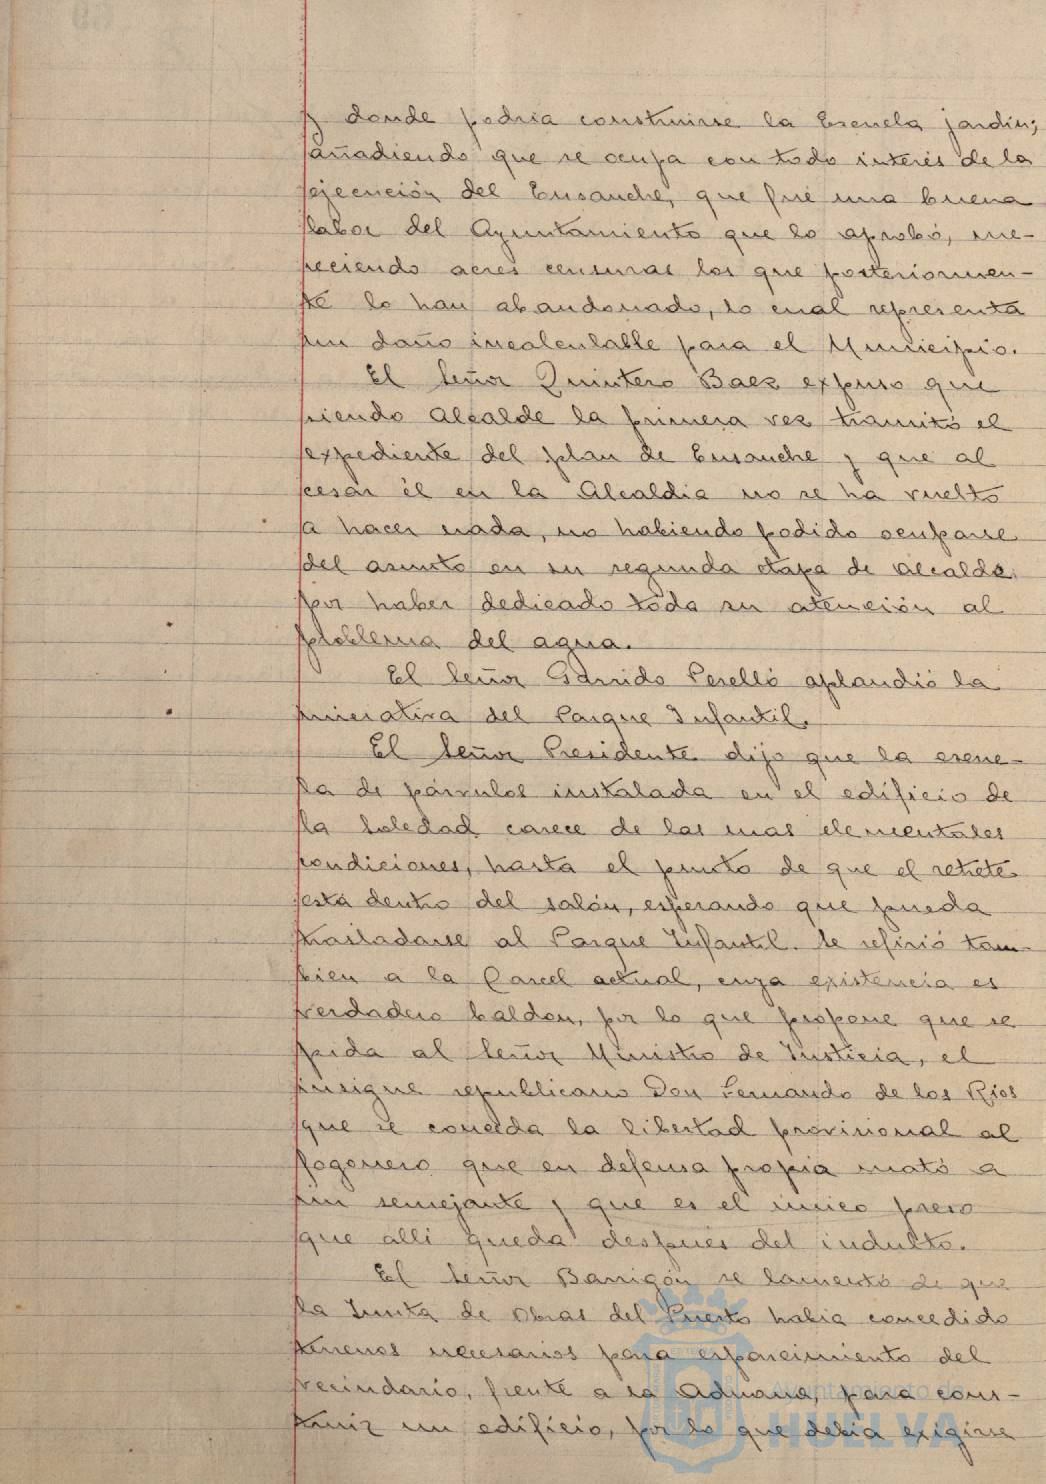 y donde podria construirse la Escuela jardin;
añadiendo que se ocupa con todo interés de la
ejecución del Ensanche, que fué una buena
labor del Ayuntamiento que lo aprobó, me-
reciendo acres censuras los que posteriormen-
te lo han abandonado, lo cual representa
un daño incalculable para el Municipio.
El Señor Quintero Baez expuso que
siendo Alcalde la primera vez tramitó el
expediente del plan de Ensanche y que al
cesar él en la Alcaldia no se ha vuelto
a hacer nada, no habiendo podido ocuparse
del asunto en su segunda etapa de Alcalde,
por haber dedicado toda su atención al
problema del agua.
El Señor Garrido Perelló aplaudió la
iniciativa del Parque Infantil.
El Señor Presidente dijo que la escue-
la de párvulos instalada en el edificio de
la Soledad carece de las mas elementales
condiciones, hasta el punto de que el retrete
está dentro del salón, esperando que pueda
trasladarse al Parque Infantil. Se refirió tam-
bien a la Carcel actual, cuya existencia es
verdadero baldon, por lo que propone que se
pida al Señor Ministro de Justicia, el
insigne republicano Don Fernando de los Rios
que se conceda la libertad provisional al
fogonero que en defensa propia mató a
un semejante y que es el único preso
que alli queda despues del indulto.
El Señor Barrigón se lamentó de que
la Junta de Obras del Puerto habia concedido
terrenos necesarios para esparcimiento del
vecindario, frente a la Aduana, para cons-
truir un edificio, por lo que debia exigirse
Ayuntamiento de
HUELVA